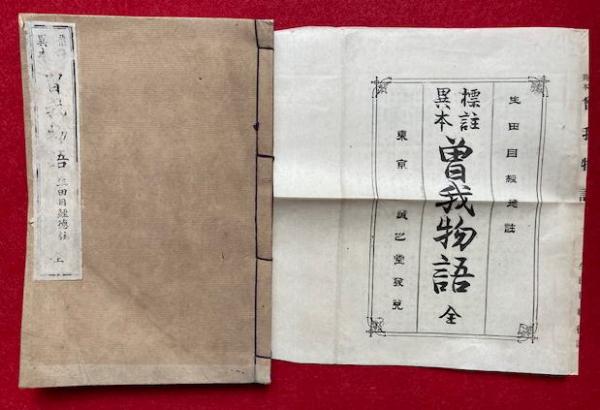 生田目經徳註
標註
異本
曽我物語 全
東京 誠之堂發兌
異本
曽我物語
生田目經徳註 上